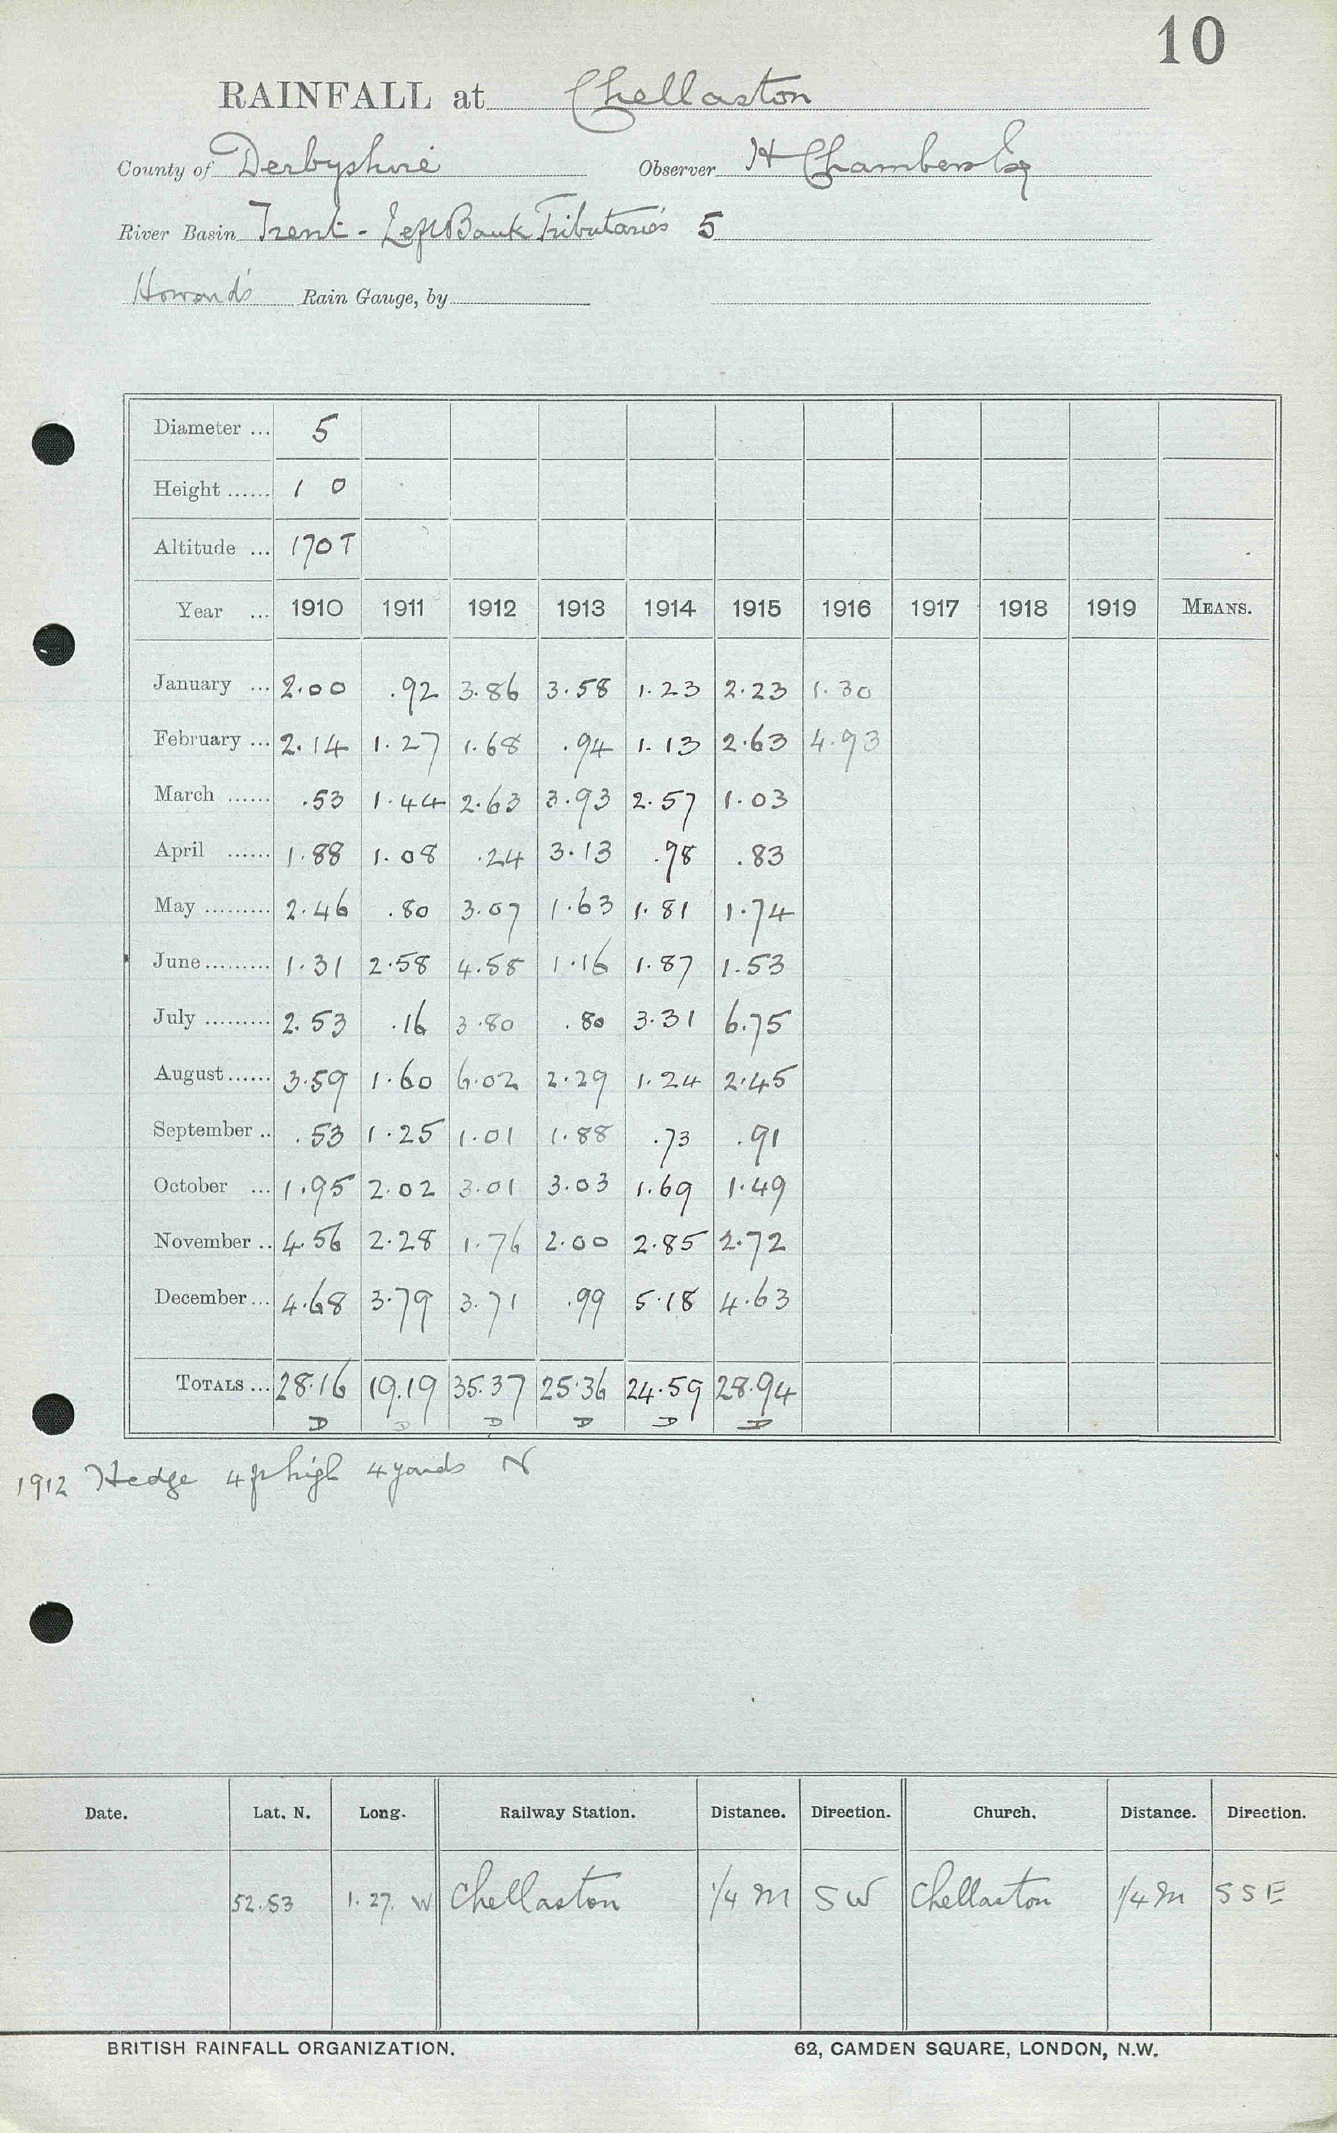 10
RAINFALL at Chellaston
County of Derbyshire Observer H Chambers Esq
River Basin Trent - Left Bank Tributaries 5
Howard's Rain Gauge, by
Diameter ... 5
Height ...... 1 0
Altitude ... 170 T
Year ... 1910 1911 1912 1913 1914 1915 1916 1917 1918 1919 MEANS.
January ... 2.00 .92 3.86 3.58 1.23 2.23 1.30
February ... 2.14 1.27 1.68 .94 1.13 2.63 4.93
March ...... .53 1.44 2.63 3.93 2.57 1.03
April ...... 1.88 1.08 .24 3.13 .98 .83
May ......... 2.46 .80 3.07 1.63 1.81 1.74
June ......... 1.31 2.58 4.58 1.16 1.87 1.53
July ......... 2.53 .16 3.80 .80 3.31 6.75
August ...... 3.59 1.60 6.02 2.29 1.24 2.45
September .. .53 1.25 1.01 1.88 .73 .91
October ... 1.95 2.02 3.01 3.03 1.69 1.49
November .. 4.56 2.28 1.76 2.00 2.85 2.72
December ... 4.68 3.79 3.71 .99 5.18 4.63
TOTALS ... 28.16 19.19 35.37 25.36 24.59 28.94
D D D D D D
1912 Hedge 4 ft high 4 yards N
Date. Lat. N. Long. Railway Station. Distance. Direction. Church. Distance. Direction.
52.53 1.27. W Chellaston 1/4 m SW Chellaston 1/4 m SSE
BRITISH RAINFALL ORGANIZATION. 62, CAMDEN SQUARE, LONDON, N.W.